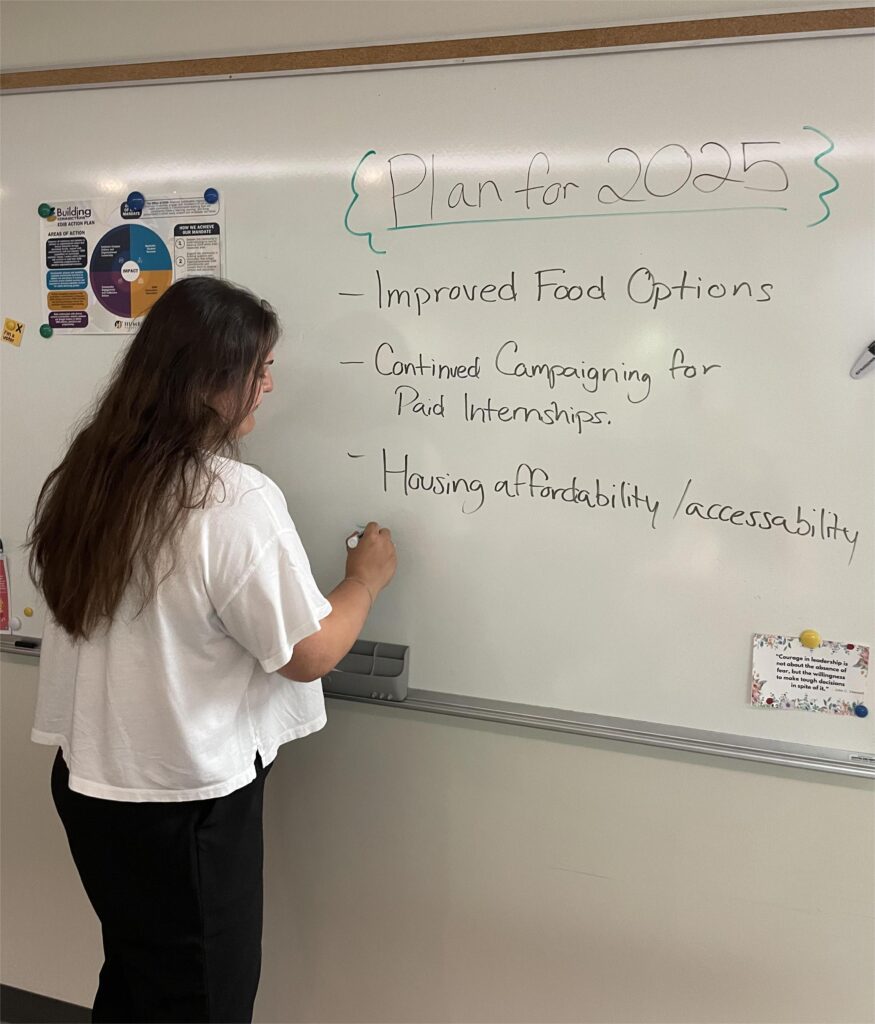 {Plan for 2025}
- Improved Food Options
- Continued Campaigning for
Paid Internships.
- Housing affordability/accessability
Building
EDIB ACTION PLAN
AREAS OF ACTION
IMPACT
MANDATE
HOW WE ACHIEVE OUR
MANDATE
1
2
I'm a
voter
"Courage in leadership is
not about the absence of
fear, but the willingness
to make tough decisions
in spite of it."